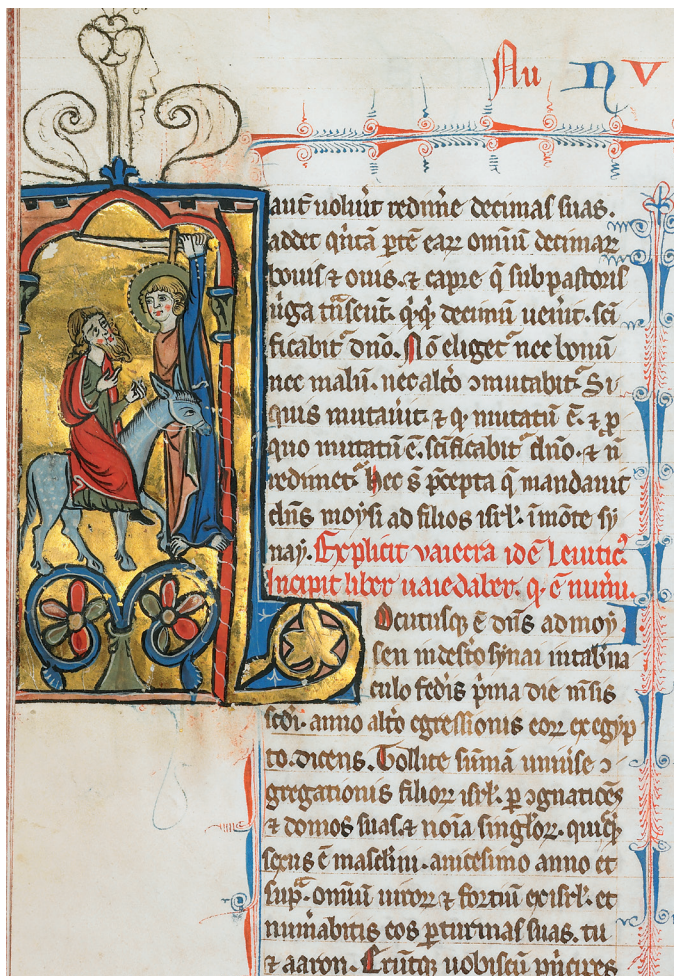 Nu n v
aut̄ voluīt redimēe decimas suas.
addet q̄ntā ꝑtē eaꝝ omiū decimaꝝ
bouis ⁊ ouis. ⁊ capre q̄ sub pastoris
ūga trāseūt. q̇q̇ decimū uenīt. sc̄i
ficabit᷑ dn̄o. Nō eliget᷑ nec bonū
nec malū. nec alt̄o ↄmutabit᷑. Si
quis mutauīt. ⁊ q̇ mutatū ē. ⁊ ꝓ
quo mutatū ē. sc̄ificabit᷑ dn̄o. ⁊ n̄
redimet᷑. hec s̄ p̄cepta q̄ mandauit
dn̄s moysi ad filios isrl̄. ī mōte sy
nay. Explicit vaiecra idē Leuitic᷒.
Incipit liber uaiedaber. q̇ ē num̄i.
Locutusq; ē dn̄s ad moy
sen in desto synai in tab̄na
culo fed̄is p̄ma die m̄sis
scd̄i. anno alt̄o egressionis eoꝝ ex egyp
to. dicens. Tollite sūmā uniūse ↄ
gregationis filioꝝ isrl̄. ꝑ ↄgnatiōēs
⁊ domos suas. ⁊ noīa singl̄oꝝ. quicq̇
sexus ē masclini. a uicesimo anno et
sup̄ᵃ. omiū uiroꝝ ⁊ fortiū ex isrl̄. et
num̄abitis eos ꝑ turmas suas. tu
⁊ aaron. Erūtq; uobiscū p̄ncipes